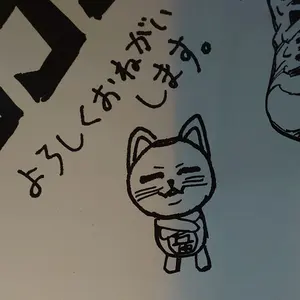 よろしくおねがい
します。
福